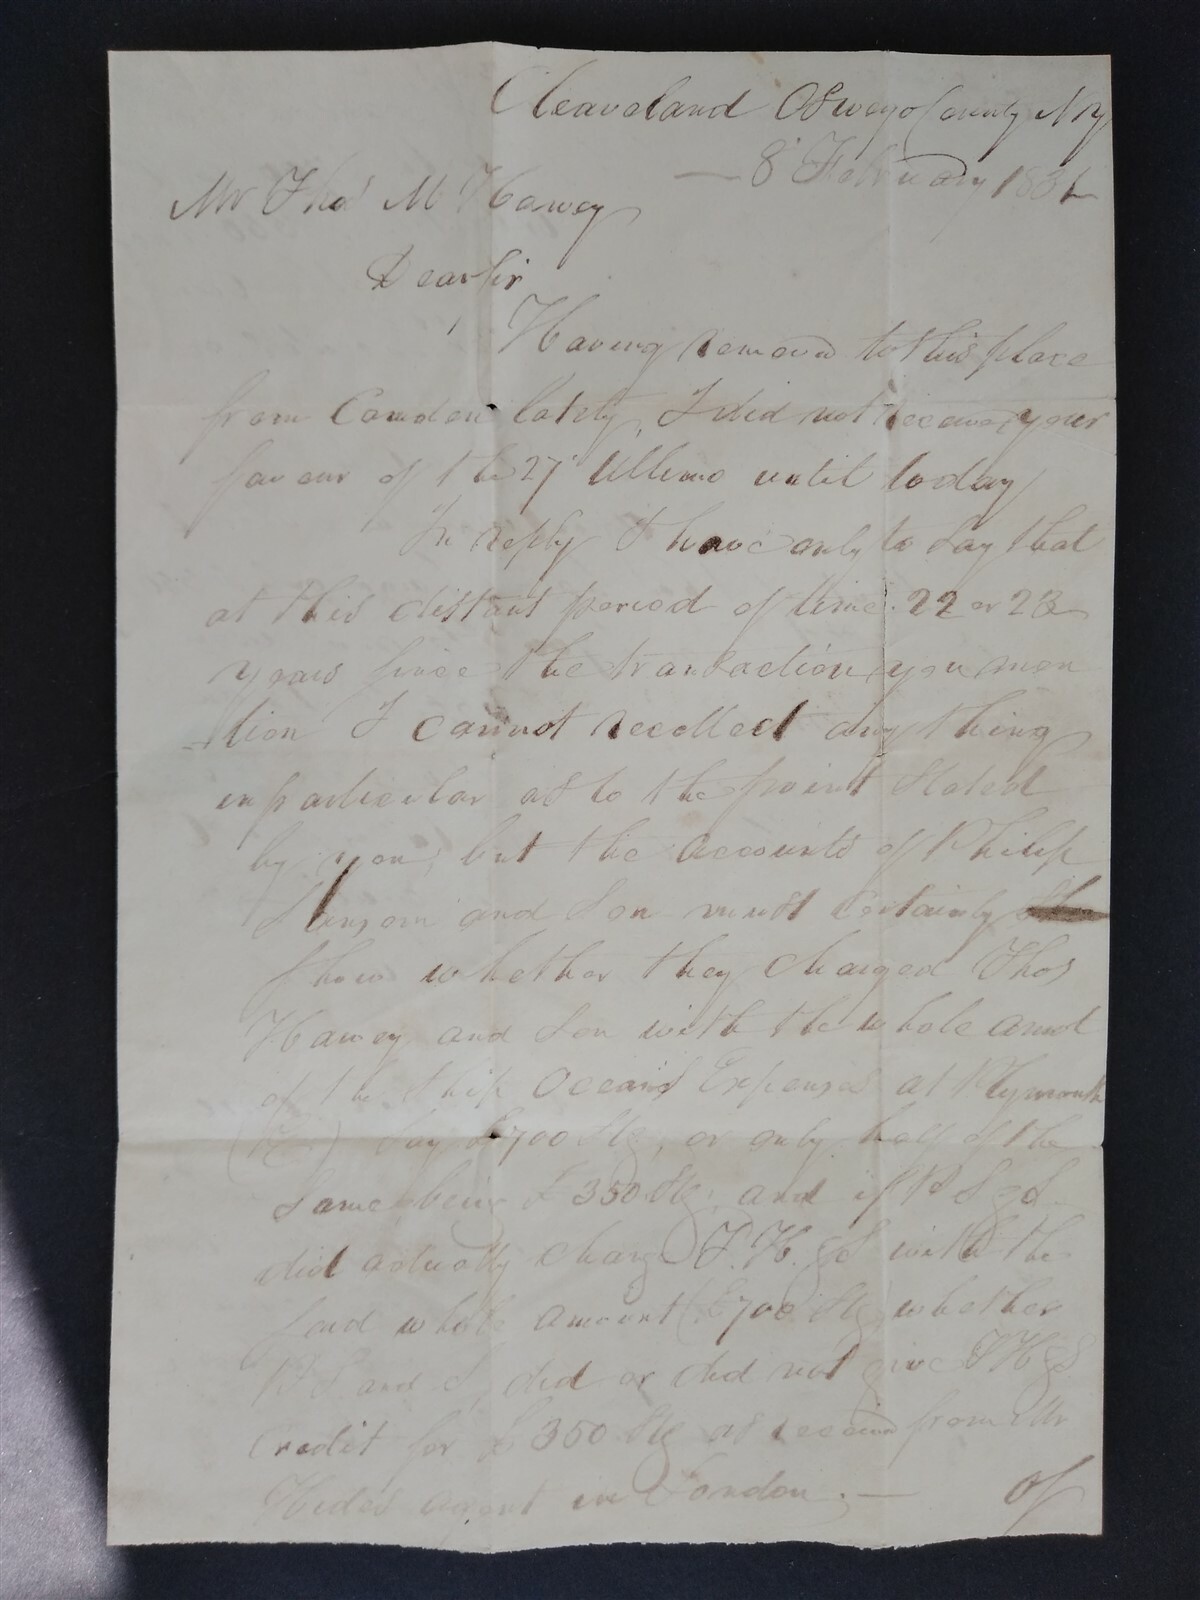 Cleaveland Oswego County NY
— 8 February 183
Mr Thos M Haweg
Dear Sir
Having removed to this place
from Camden lately, I did not receive your
favour of the 27 Ultimo until today
In reply I have only to say that
at this distant period of time 22 or 23
years since the transaction you men
tion I cannot recollect anything
in particular as to the point stated
by you, but the accounts of Philip
Sansom and Son must certainly
show whether they charged Thos
Haweg and Son with the whole amot
of the Ship Oceans Expenses at Plymouth
say £700 Stg, or only half of the
same being £350 Stg, and if P S & S
did actually charge T. H. & S with the
said whole amount (£700 Stg) whether
P S and S, did or did not give T H & S
credit for £350 Stg as received from Mr
agent in London. —
Of